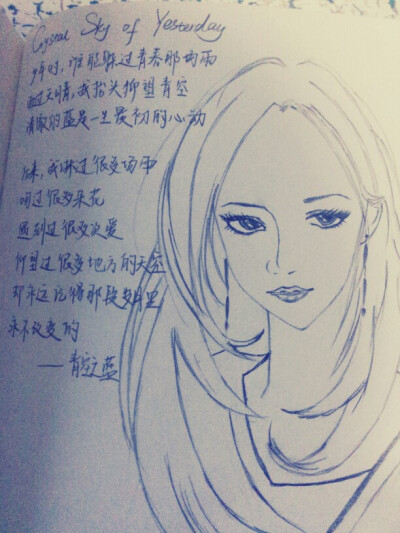 Crystal Sky of Yesterday
少年时，谁能躲过青春那场雨
雨过天晴，我抬头仰望青空
清澈的蓝是一生最初的心动
后来，我淋过很多场雨
闻过很多朵花
遇到过很多次爱
仰望过很多地方的天空
却永远记得那段岁月里
永不改变的
——青空之蓝